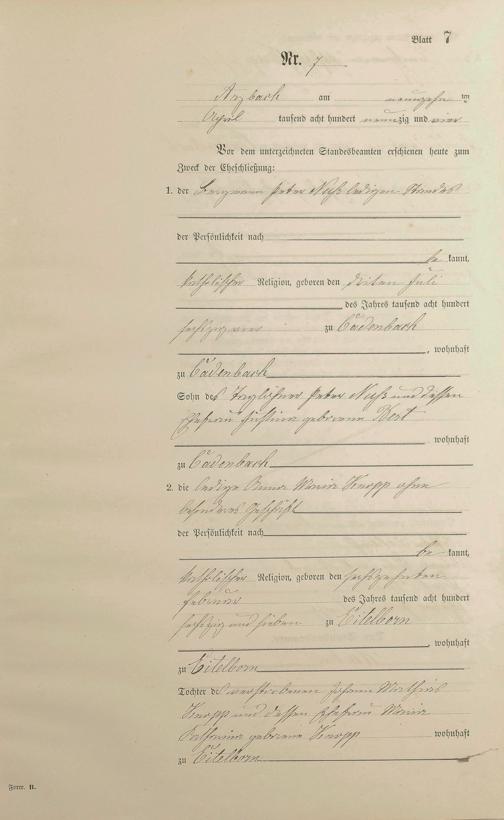 Blatt 7
Nr. 7
Arzbach am neunzehn ten
April tausend acht hundert neunzig und vier
Vor dem unterzeichneten Standesbeamten erschienen heute zum
Zweck der Eheschließung:
1. der Bergmann Peter Nuß ledigen Standes
der Persönlichkeit nach
be kannt,
katholischer Religion, geboren den dritten Juli
des Jahres tausend acht hundert
sechzig vier zu Cadenbach
, wohnhaft
zu Cadenbach
Sohn des Taglöhner Peter Nuß und dessen
Ehefrau Justina geborene Kost
wohnhaft
zu Cadenbach
2. die ledige Anna Maria Knopp ohne
besonderes Geschäft
der Persönlichkeit nach
be kannt,
katholischer Religion, geboren den sechszehnten
Februar des Jahres tausend acht hundert
sechzig und sieben zu Eitelborn
, wohnhaft
zu Eitelborn
Tochter des verstorbenen Johann Mathias
Knopp und dessen Ehefrau Maria
Katharina geborene Knopp wohnhaft
zu Eitelborn
Form. B.